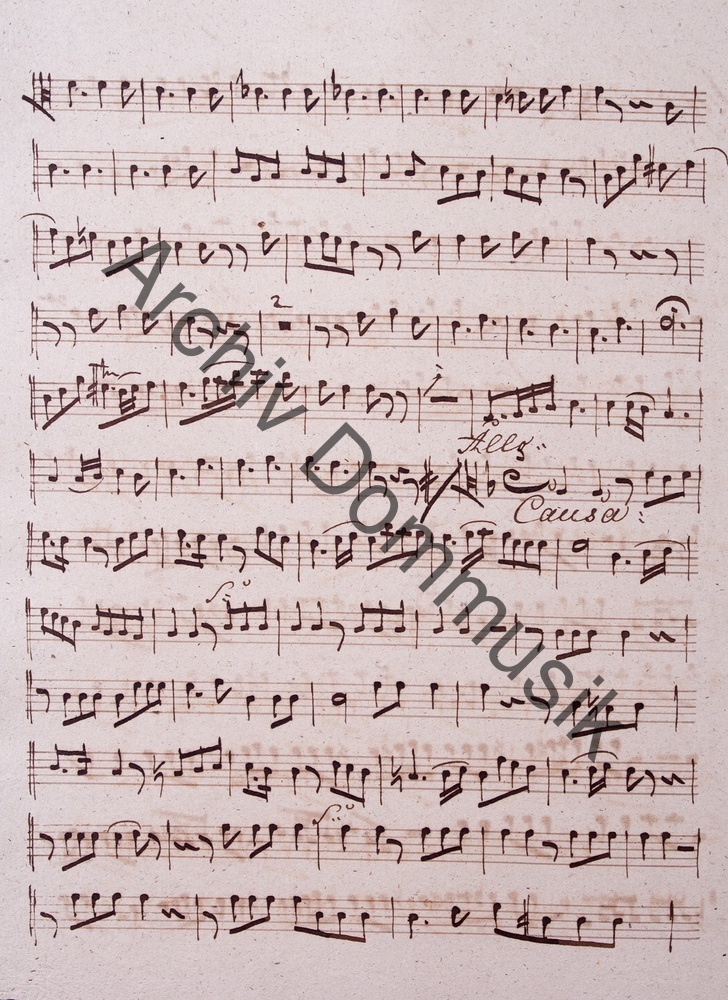 2
Allo:
Causa:
Archiv Dommusik